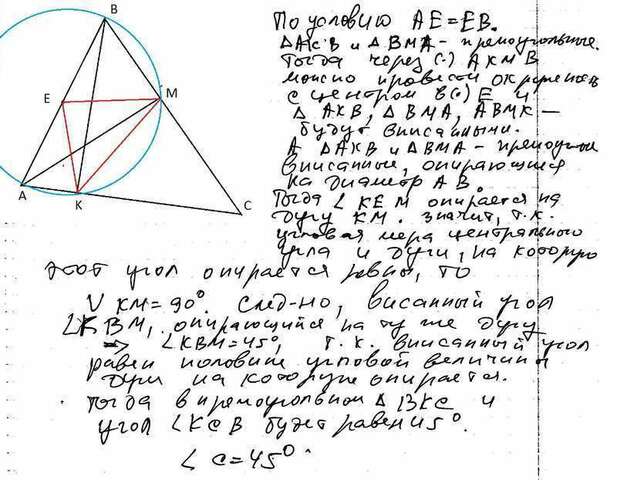 B
E
M
A
K
C
По условию AE=EB.
ΔAKB и ΔBMA - прямоугольные.
Тогда через (·) AKMB
можно провести окружность
с центром в (·) E и
ΔAKB, ΔBMA, ABMK —
будут вписанными.
А ΔAKB и ΔBMA - прямоуг
вписанные, опирающиеся
на диаметр AB.
Тогда ∠KEM опирается на
дугу KM. значит, т.к.
угловая мера центрального
угла и дуги, на которую
этот угол опирается равны, то
∪KM=90°. след-но, висанный угол
∠KBM, опирающийся на ту же дугу
⇒ ∠KBM=45°, т.к. вписанный угол
равен половине угловой величины
дуги на которую опирается.
Тогда в прямоугольном ΔBKC и
угол ∠KCB будет равен 45°.
∠C=45°.